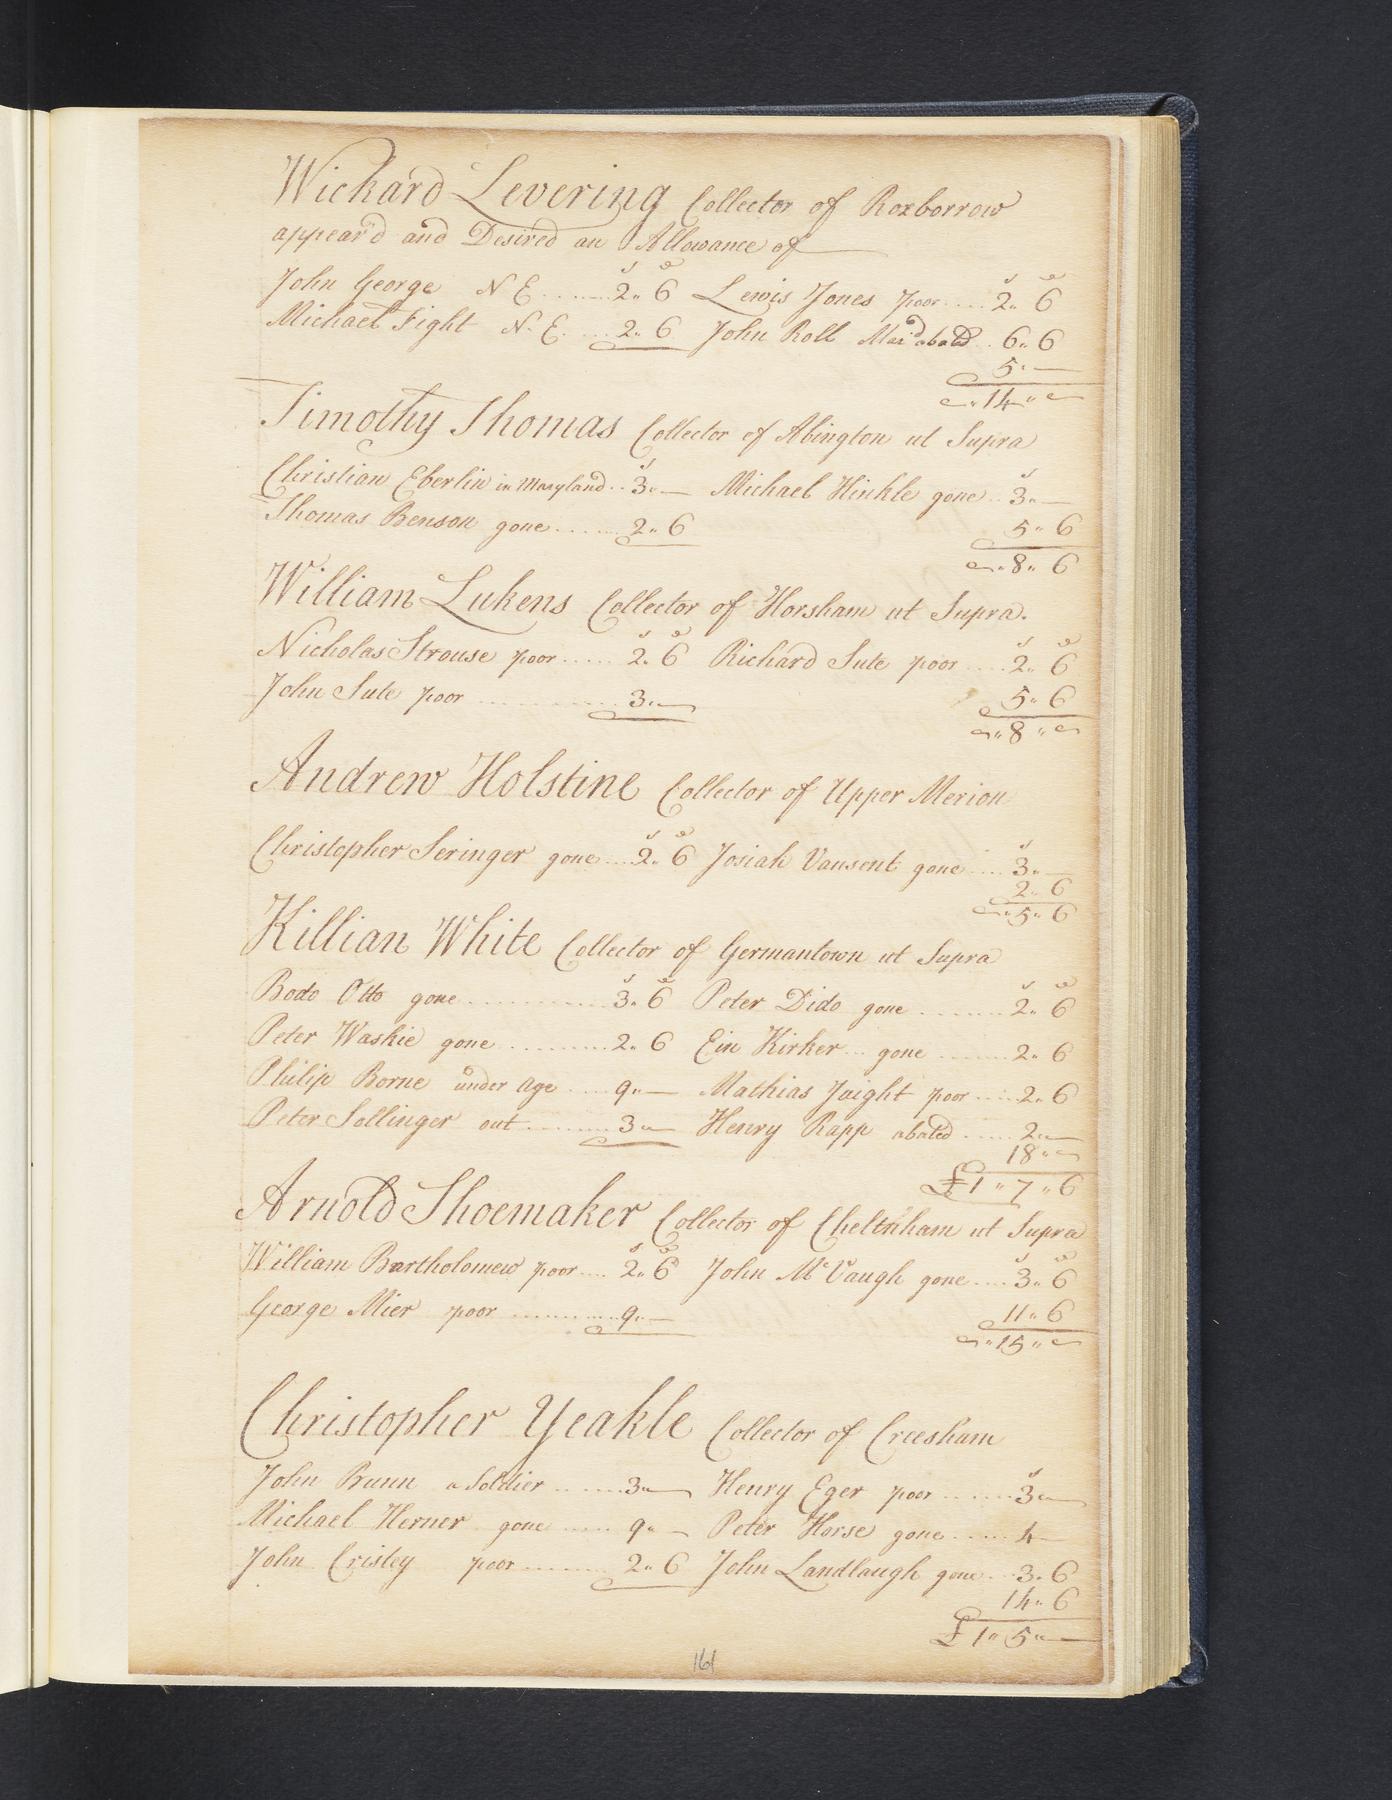 Wickard Levering Collector of Roxborrow
appear'd and Desired an Allowance of
s d s d
John George N E ........ 2 " 6 Lewis Jones poor .... 2 " 6
Michael Fight N. E. .... 2 " 6 John Roll Mar'd abated . 6 " 6
5 " —
" 14 "
Timothy Thomas Collector of Abington ut Supra
s s
Christian Eberlin in Maryland .. 3 " — Michael Hinkle gone .. 3 " —
Thomas Benson gone ...... 2 " 6
5 " 6
" 8 " 6
William Lukens Collector of Horsham ut Supra.
s d s d
Nicholas Strouse poor ..... 2 " 6 Richard Sute poor .... 2 " 6
John Sute poor ............ 3 " —
5 " 6
" 8 "
Andrew Holstine Collector of Upper Merion
s d s
Christopher Seringer gone .... 2 " 6 Josiah Vansent gone .... 3 " —
2 " 6
" 5 " 6
Killian White Collector of Germantown ut Supra
s d s d
Bodo Otto gone ............. 3 " 6 Peter Dido gone ........ 2 " 6
Peter Waskie gone .......... 2 " 6 Ein Kirker ... gone ....... 2 " 6
Philip Borne under Age .... 9 " — Mathias Jaight poor ..... 2 " 6
Peter Sollinger out ........ 3 " — Henry Rapp abated ..... 2 " —
18 " —
£1 " 7 " 6
Arnold Shoemaker Collector of Cheltnham ut Supra
s d s d
William Bartholomew poor .... 2 " 6 John McVaugh gone .... 3 " 6
George Mier poor .......... 9 " —
11 " 6
" 15 "
Christopher Yeakle Collector of Creesham
s
John Bunn a Soldier ....... 3 " — Henry Eger poor ....... 3 " —
Michael Herner gone ..... 9 " — Peter Horse gone ..... 4 —
John Crisley poor ........ 2 " 6 John Landlaugh gone ... 3 " 6
14 " 6
£ 1 " 5 " —
161